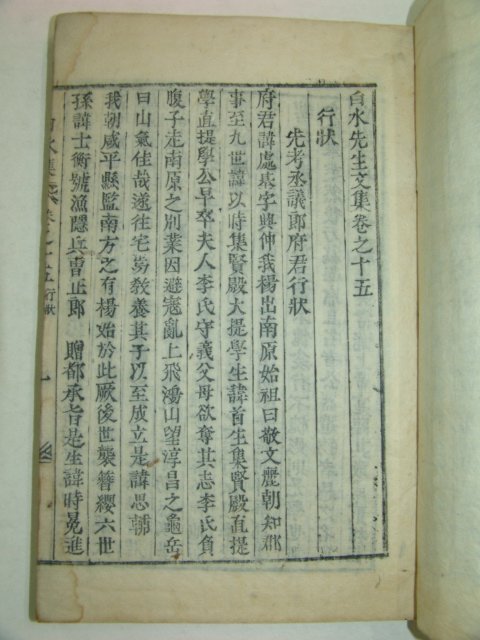 白水先生文集卷之十五
行狀
先考丞議郞府君行狀
府君諱處基字興仲我楊出南原始祖曰敬文麗朝知郡
事至九世諱以時集賢殿大提學生諱首生集賢殿直提
學直提學公早卒夫人李氏守義父母欲奪其志李氏負
腹子走南原之別業因避寇亂上飛鴻山望淳昌之龜岳
曰山氣佳哉遂往宅焉敎養其子以至成立是諱思輔
我朝咸平縣監南方之有楊始於此厥後世襲簪纓六世
孫諱士衡號漁隱兵曹正郞 贈都承旨是生諱時冕進
白水集 卷之十五 行狀 一